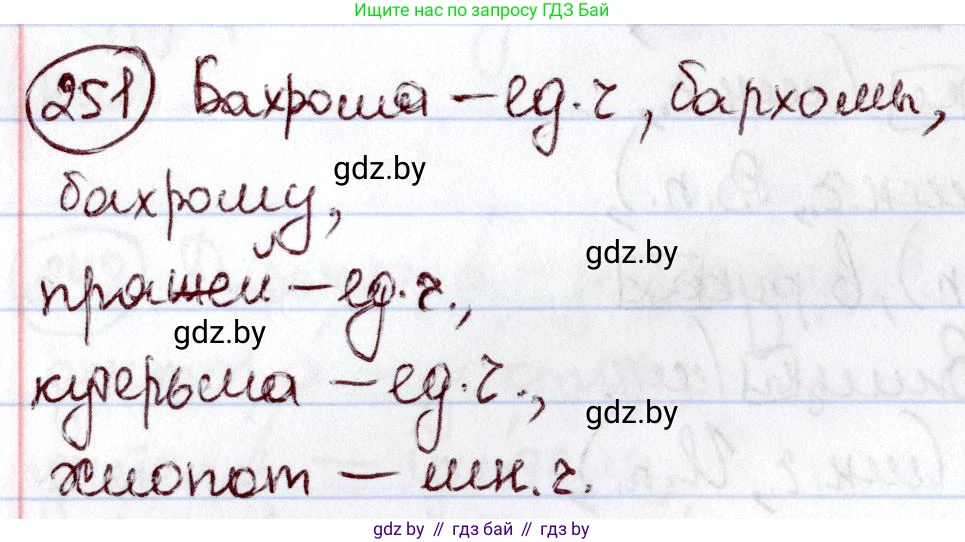 Ищите нас по запросу ГДЗ Бай
251 Бахрома – ед.ч, бархомы,
gdz.by
бахрому,
gdz.by
пряжей – ед.ч.,
gdz.by
кутерьма – ед.ч.,
gdz.by
хлопот – мн.ч.
gdz.by // гдз бай // гдз by